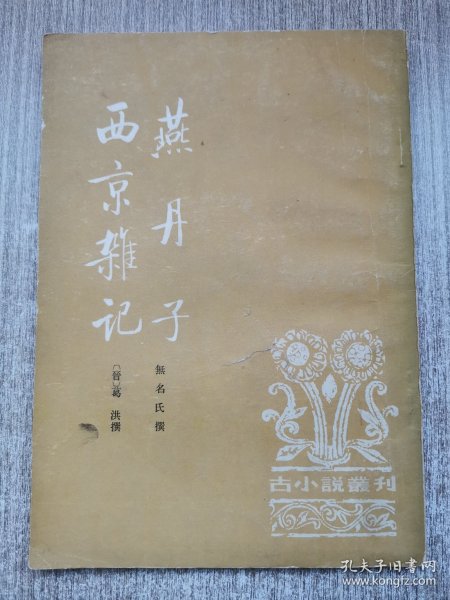 燕丹子
無名氏撰
西京雜记
〔晉〕葛洪撰
古小說叢刊
孔夫子旧书网
www.kongfz.com